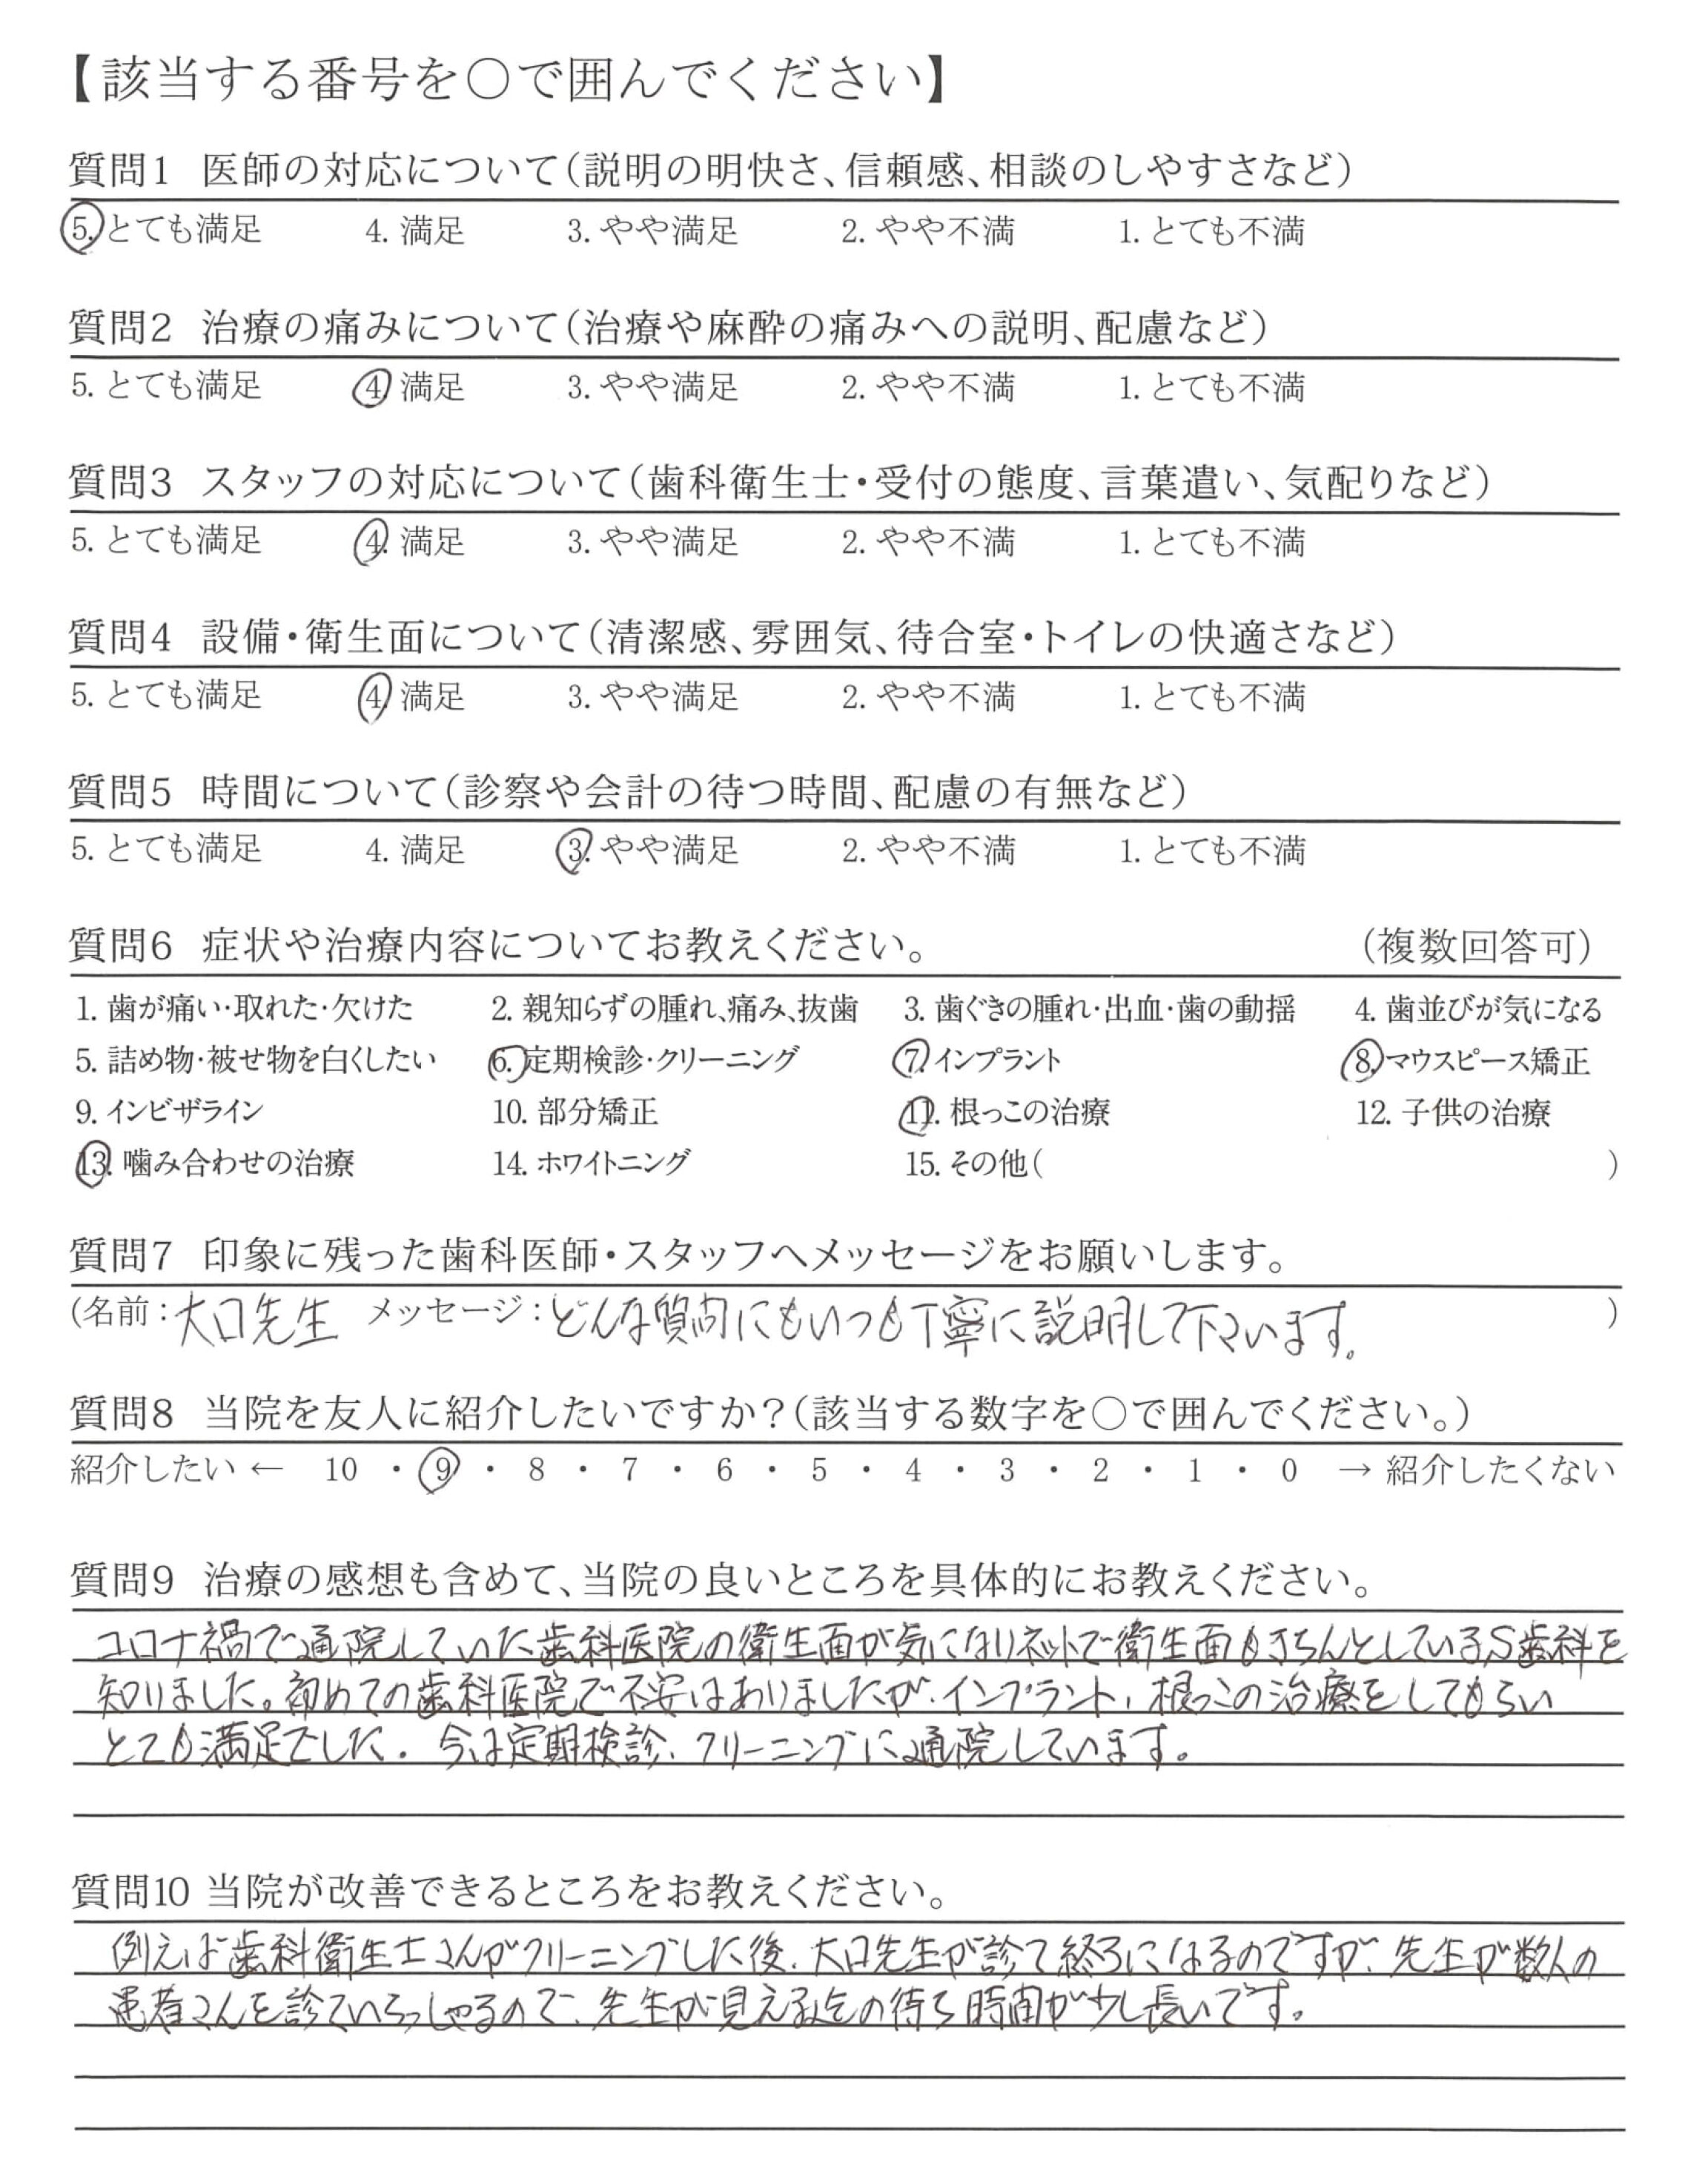 【該当する番号を○で囲んでください】
質問1 医師の対応について（説明の明快さ、信頼感、相談のしやすさなど）
5. とても満足 4. 満足 3. やや満足 2. やや不満 1. とても不満
質問2 治療の痛みについて（治療や麻酔の痛みへの説明、配慮など）
5. とても満足 4. 満足 3. やや満足 2. やや不満 1. とても不満
質問3 スタッフの対応について（歯科衛生士・受付の態度、言葉遣い、気配りなど）
5. とても満足 4. 満足 3. やや満足 2. やや不満 1. とても不満
質問4 設備・衛生面について（清潔感、雰囲気、待合室・トイレの快適さなど）
5. とても満足 4. 満足 3. やや満足 2. やや不満 1. とても不満
質問5 時間について（診察や会計の待つ時間、配慮の有無など）
5. とても満足 4. 満足 3. やや満足 2. やや不満 1. とても不満
質問6 症状や治療内容についてお教えください。 （複数回答可）
1. 歯が痛い・取れた・欠けた 2. 親知らずの腫れ、痛み、抜歯 3. 歯ぐきの腫れ・出血・歯の動揺 4. 歯並びが気になる
5. 詰め物・被せ物を白くしたい 6. 定期検診・クリーニング 7. インプラント 8. マウスピース矯正
9. インビザライン 10. 部分矯正 11. 根っこの治療 12. 子供の治療
13. 噛み合わせの治療 14. ホワイトニング 15. その他（ ）
質問7 印象に残った歯科医師・スタッフへメッセージをお願いします。
（名前：大口先生 メッセージ：どんな質問にもいつも丁寧に説明して下さいます。 ）
質問8 当院を友人に紹介したいですか？（該当する数字を○で囲んでください。）
紹介したい ← 10 ・ 9 ・ 8 ・ 7 ・ 6 ・ 5 ・ 4 ・ 3 ・ 2 ・ 1 ・ 0 → 紹介したくない
質問9 治療の感想も含めて、当院の良いところを具体的にお教えください。
コロナ禍で通院していた歯科医院の衛生面が気になりネットで衛生面もきちんとしているS歯科を
知りました。初めての歯科医院で不安はありましたが、インプラント、根っこの治療をしてもらい
とても満足でした。今は定期検診、クリーニングに通院しています。
質問10 当院が改善できるところをお教えください。
例えば歯科衛生士さんがクリーニングした後、大口先生が診て終了になるのですが、先生が数人の
患者さんを診ていらっしゃるので、先生が見えるまでの待ち時間が少し長いです。